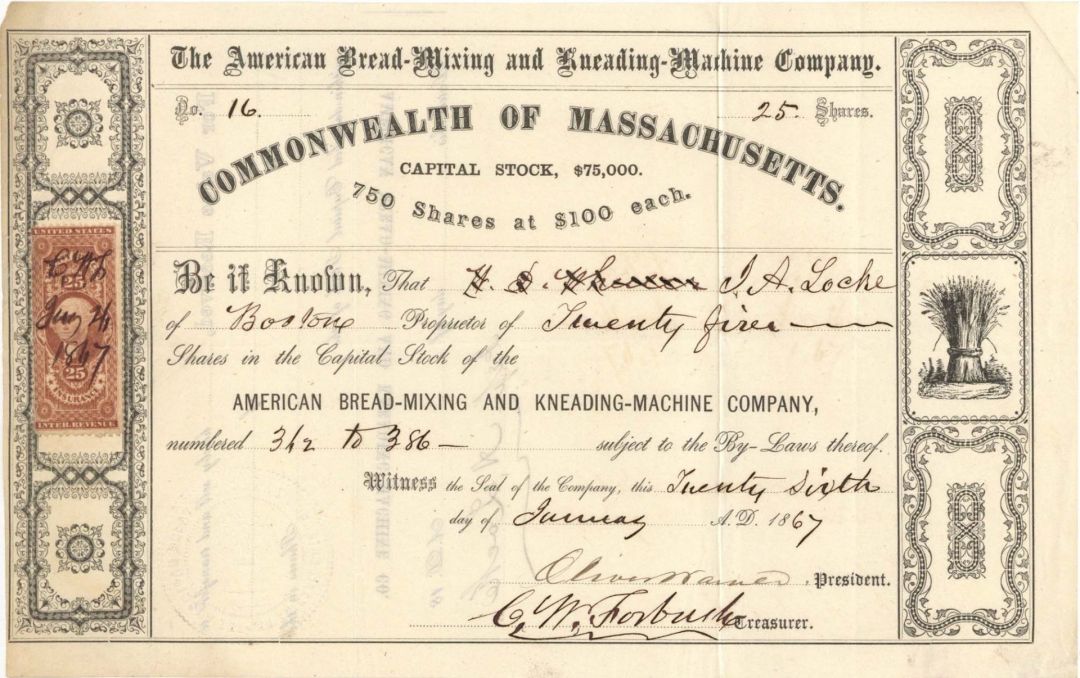 The American Bread-Mixing and Kneading-Machine Company.
No. 16. 25. Shares.
COMMONWEALTH OF MASSACHUSETTS.
CAPITAL STOCK, $75,000.
750 Shares at $100 each.
Be it Known, That J. A. Locke
of Boston Proprietor of Twenty five
Shares in the Capital Stock of the
AMERICAN BREAD-MIXING AND KNEADING-MACHINE COMPANY,
numbered 362 to 386 — subject to the By-Laws thereof.
Witness the Seal of the Company, this Twenty Sixth
day of January A.D. 1867
Oliver Warner. President.
C. W. Forbush Treasurer.
UNITED STATES
25
C.W.F.
Jany 26
1867
25
INSURANCE
INTER. REVENUE